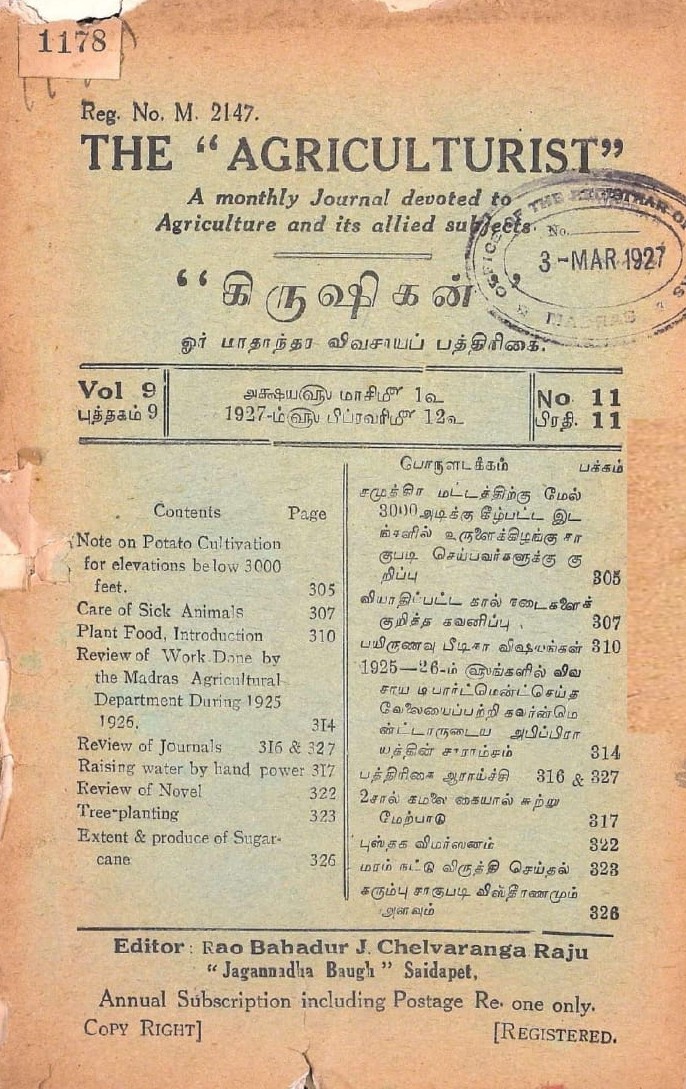 1178
Reg. No. M. 2147.
THE “AGRICULTURIST”
A monthly Journal devoted to
Agriculture and its allied subjects.
OFFICE OF THE REGISTRAR OF
No.
3-MAR 1927
MADRAS
“கிருஷிகன்”
ஓர் மாதாந்தர விவசாயப் பத்திரிகை.
Vol 9
புத்தகம் 9
அக்ஷய௵ மாசிமீ 1௳
1927-ம்௵ பிப்ரவரிமீ 12௳
No 11
பிரதி. 11
Contents Page
Note on Potato Cultivation
for elevations below 3000
feet. 305
Care of Sick Animals 307
Plant Food, Introduction 310
Review of Work Done by
the Madras Agricultural
Department During 1925
1926. 314
Review of Journals 316 & 327
Raising water by hand power 317
Review of Novel 322
Tree-planting 323
Extent & produce of Sugar-
cane 326
பொருளடக்கம் பக்கம்
சமுத்திர மட்டத்திற்கு மேல்
3000 அடிக்கு கீழ்பட்ட இட
ங்களில் உருளைக்கிழங்கு சா
குபடி செய்பவர்களுக்கு கு
றிப்பு 305
வியாதிப்பட்ட கால் நடைகளைக்
குறித்த கவனிப்பு . 307
பயிருணவு பீடிகா விஷயங்கள் 310
1925—26-ம் ௵ங்களில் விவ
சாய டிபார்ட்மென்ட்செய்த
வேலையைப்பற்றி கவர்ன்மெ
ன்ட்டாருடைய அபிப்பிரா
யத்தின் சாராம்சம் 314
பத்திரிகை ஆராய்ச்சி 316 & 327
2சால் கமலை கையால் சுற்று
மேற்பாடு 317
புஸ்தக விமர்ஸனம் 322
மரம் நட்டு விருத்தி செய்தல் 323
கரும்பு சாகுபடி விஸ்தீரணமும்
அளவும் 326
Editor: Rao Bahadur J. Chelvaranga Raju
“Jagannadha Baugh” Saidapet,
Annual Subscription including Postage Re. one only.
COPY RIGHT] [REGISTERED.